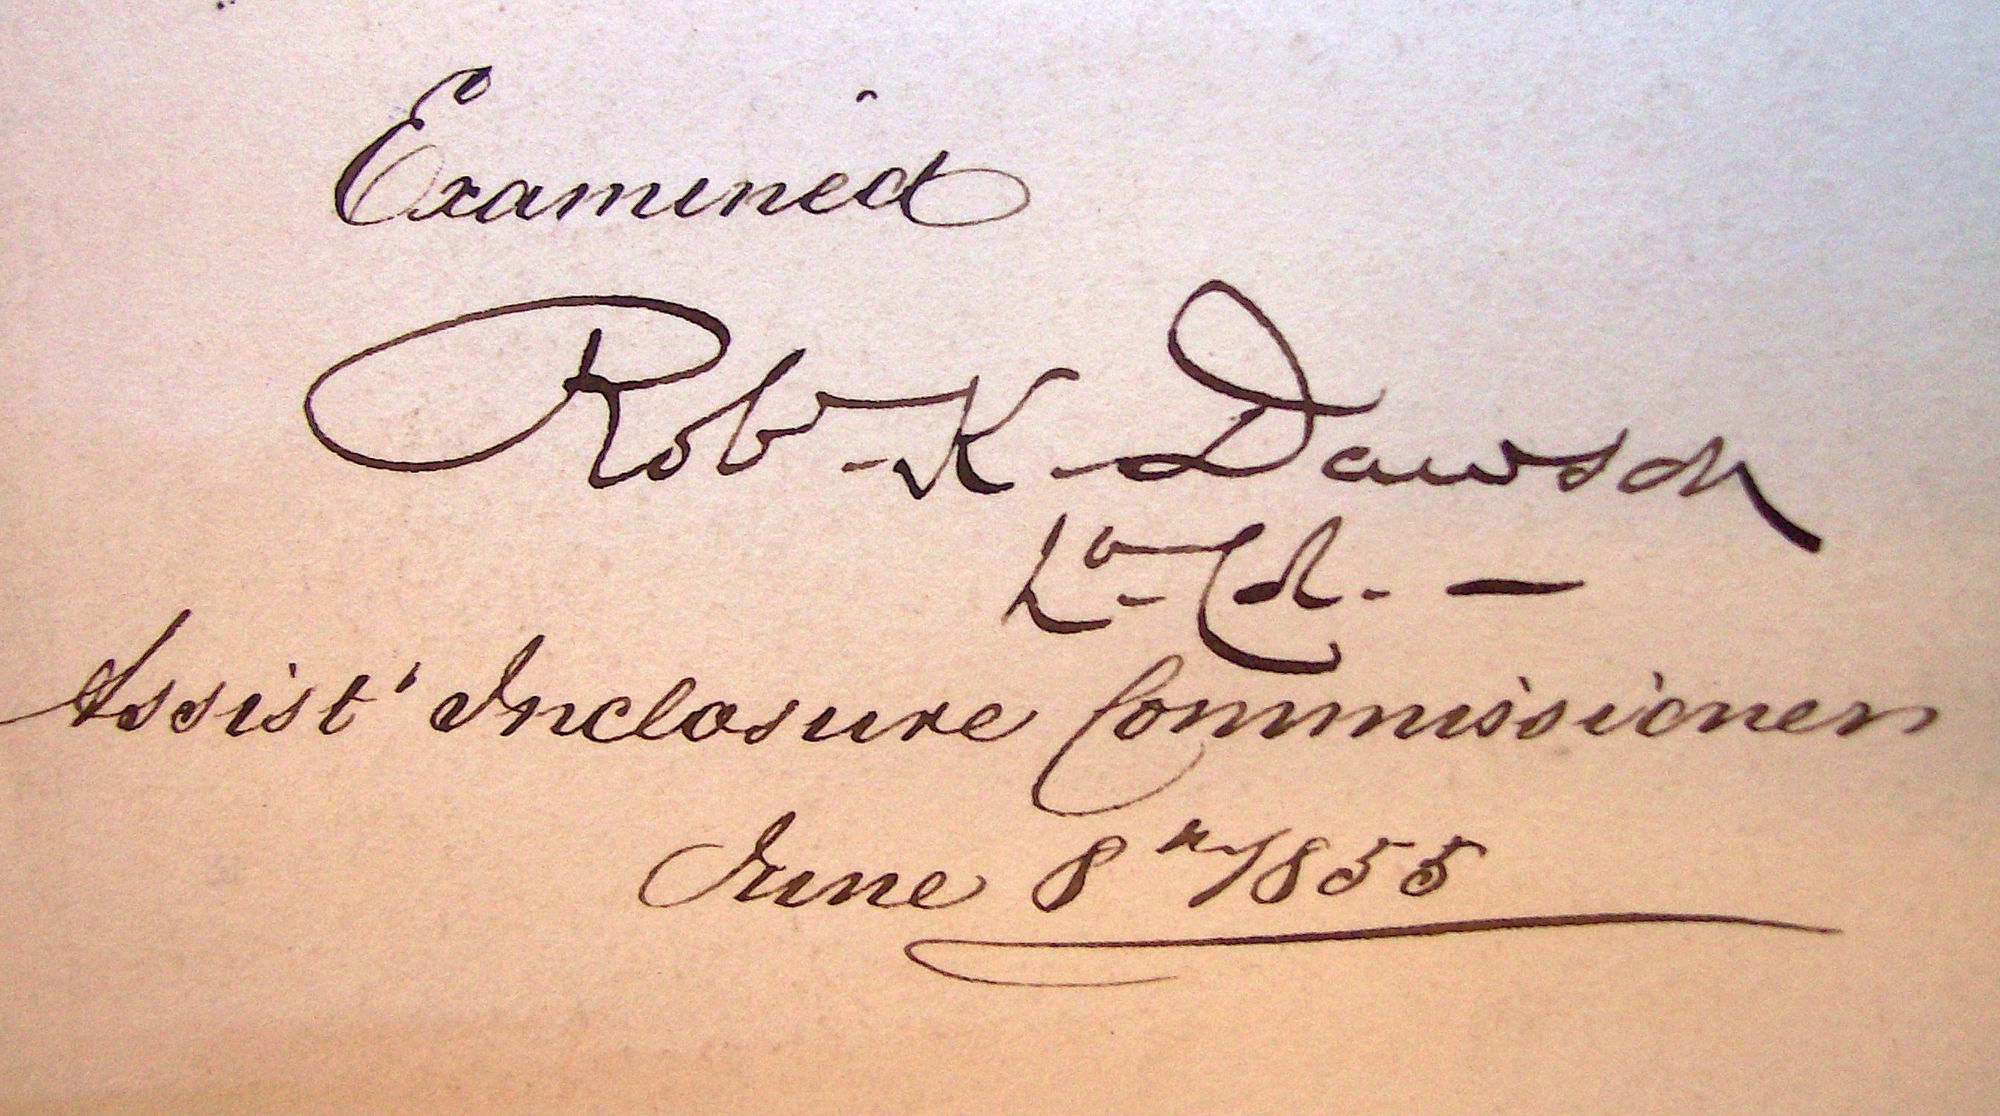 Examined
Rob K. Dawson
Lt. Col. —
Assist' Inclosure Commissioner
June 8th 1855